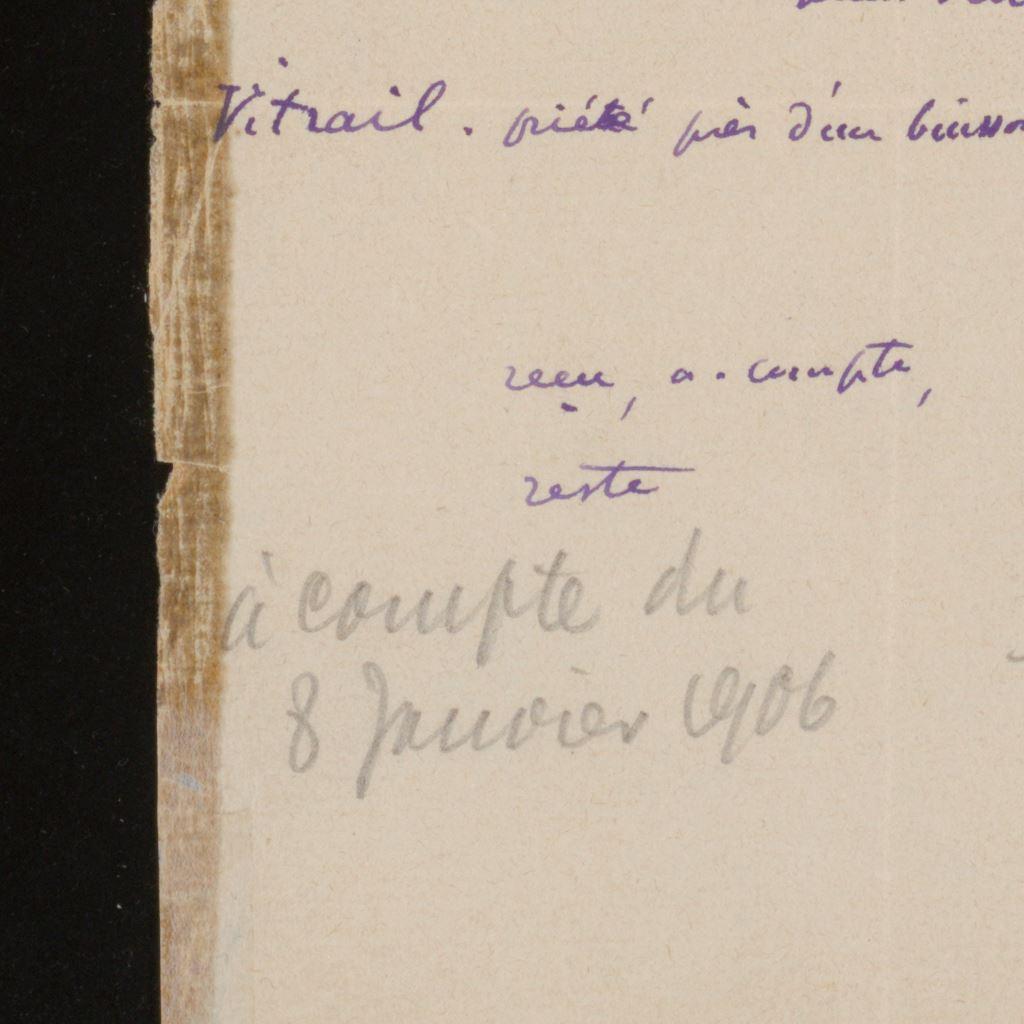 Vitrail. piété près d'un buisso
recu, a-compte,
reste
à compte du
8 Janvier 1906